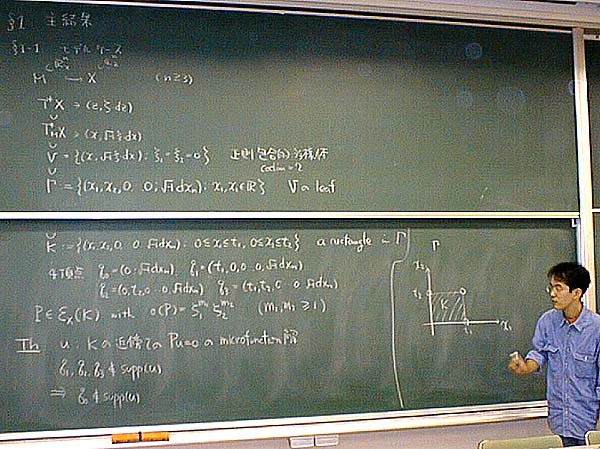 §1 主結果
§1-1 モデルケース
M ⟶ X (n≥3)
⊂ℝⁿₓ ⊂ℂⁿ_z
T*X ∋ (z, ζdz)
∪
T*_M X ∋ (x, √-1 ξdx)
∪
V = {(x, √-1 ξdx) ; ξ₁ = ξ₂ = 0} 正則包合的多様体
codim = 2
∪
Γ = {(x₁, x₂, 0 … 0 ; √-1 dxₙ) ; x₁, x₂ ∈ ℝ} V の leaf
∪
K := {(x₁, x₂, 0 … 0 ; √-1 dxₙ) ; 0≤x₁≤t₁, 0≤x₂≤t₂} a rectangle in Γ
4頂点 q₀ = (0 ; √-1 dxₙ) q₁ = (t₁, 0, 0 … 0 ; √-1 dxₙ)
q₂ = (0, t₂, 0 … 0 ; √-1 dxₙ) q₃ = (t₁, t₂, 0 … 0 ; √-1 dxₙ)
P ∈ ℰ_X(K) with σ(P) = ζ₁^{m₁} ζ₂^{m₂} (m₁, m₂ ≥ 1)
Th u : K の近傍での Pu=0 の microfunction 解
q₁, q₂, q₃ ∉ supp(u)
⟹ q₀ ∉ supp(u)
Γ
x₂
t₂
K
t₁
x₁